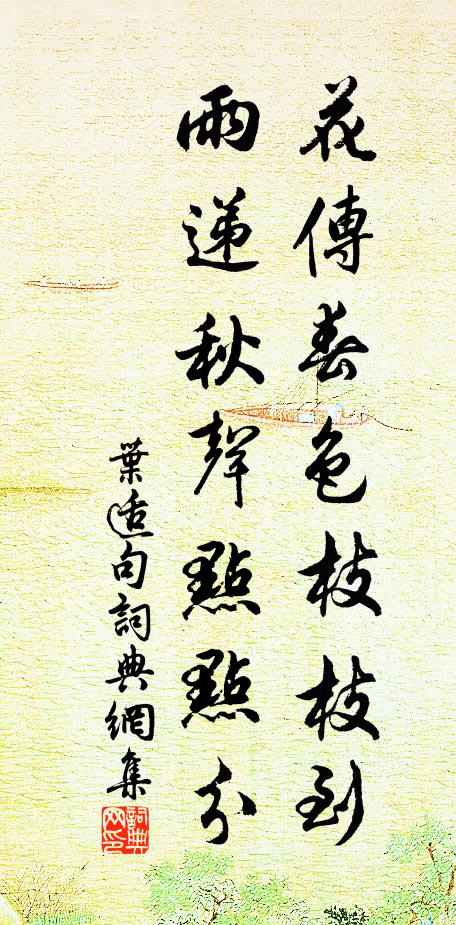 花傳春色枝枝到
雨遞秋聲點點分
葉适句詞典網集
詞典網印